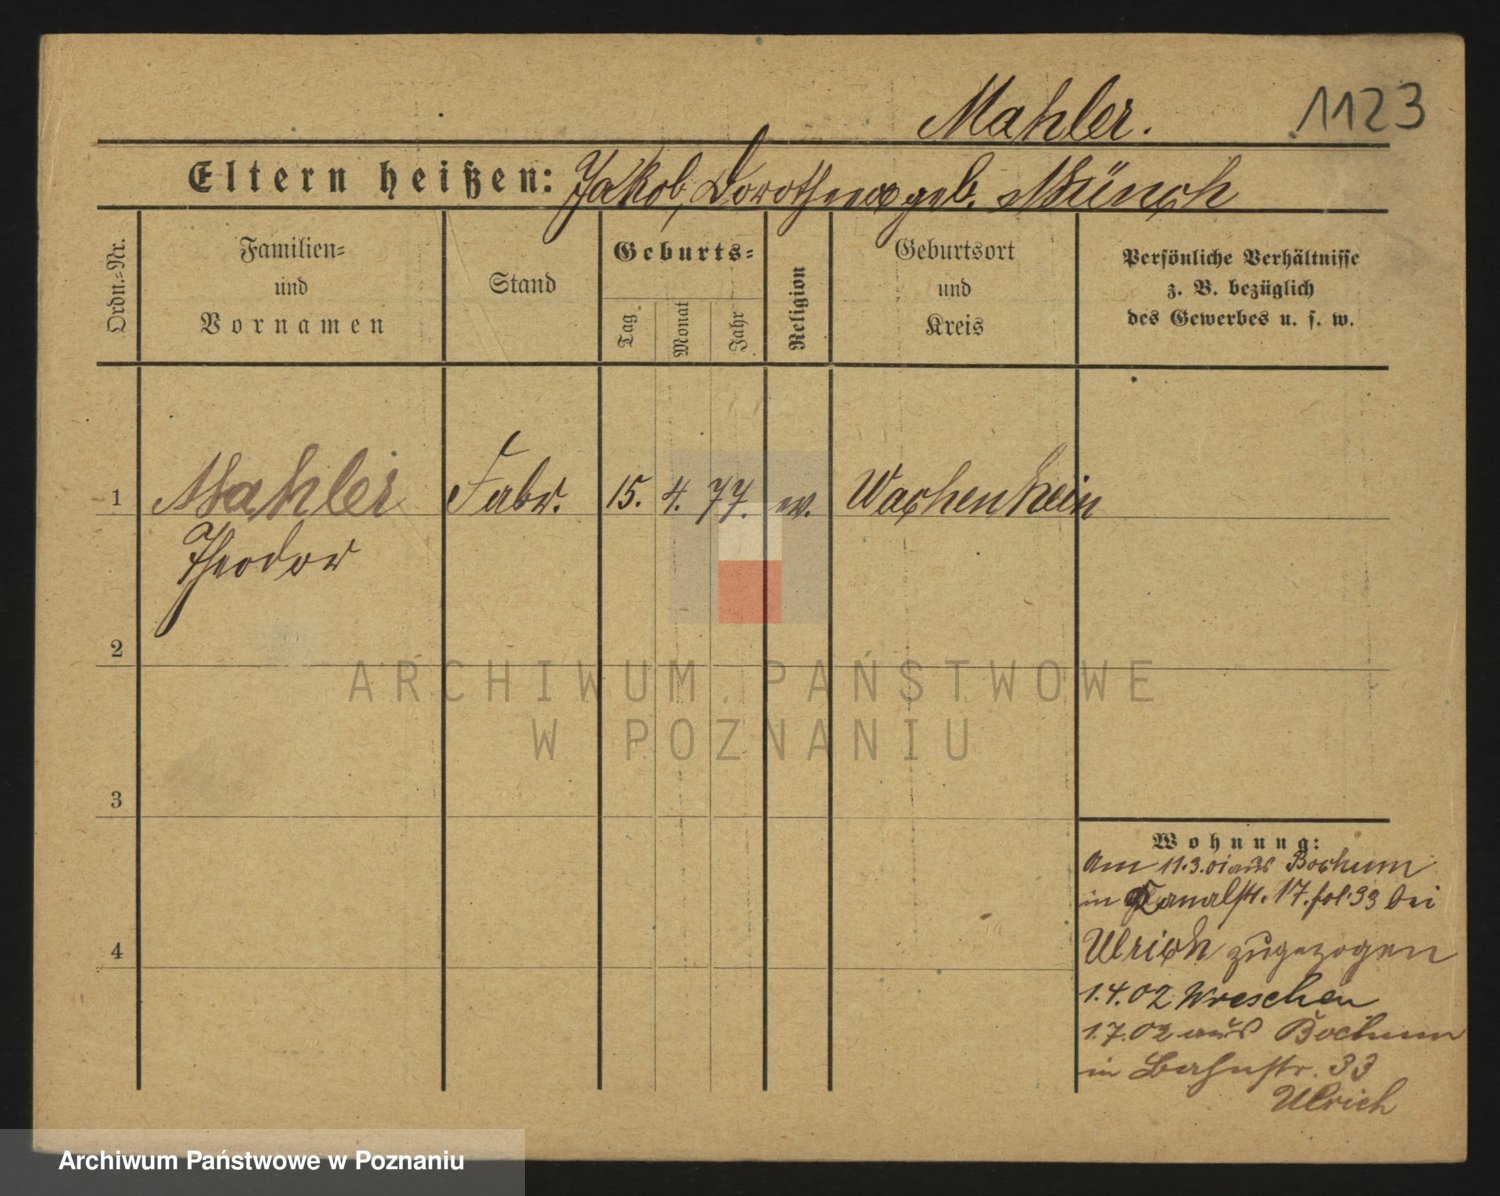 Mahler. 1123
Eltern heißen: Jakob, Dorothea geb. Münch
Ordn.=Nr.
Familien=
und
Vornamen
Stand
Geburts=
Tag
Monat
Jahr
Religion
Geburtsort
und
Kreis
Persönliche Verhältnisse
z. B. bezüglich
des Gewerbes u. s. w.
1 Mahler Fabr. 15. 4. 77. Wachenheim
Theodor
2
3
4
Wohnung:
Am 11.3.01 aus Bochum
in Canalstr. 17. fol. 93 bei
Ulrich zugezogen
1.4.02 Wreschen
1.7.02 aus Bochum
in Bahnstr. 33
Ulrich
ARCHIWUM PAŃSTWOWE
W POZNANIU
Archiwum Państwowe w Poznaniu